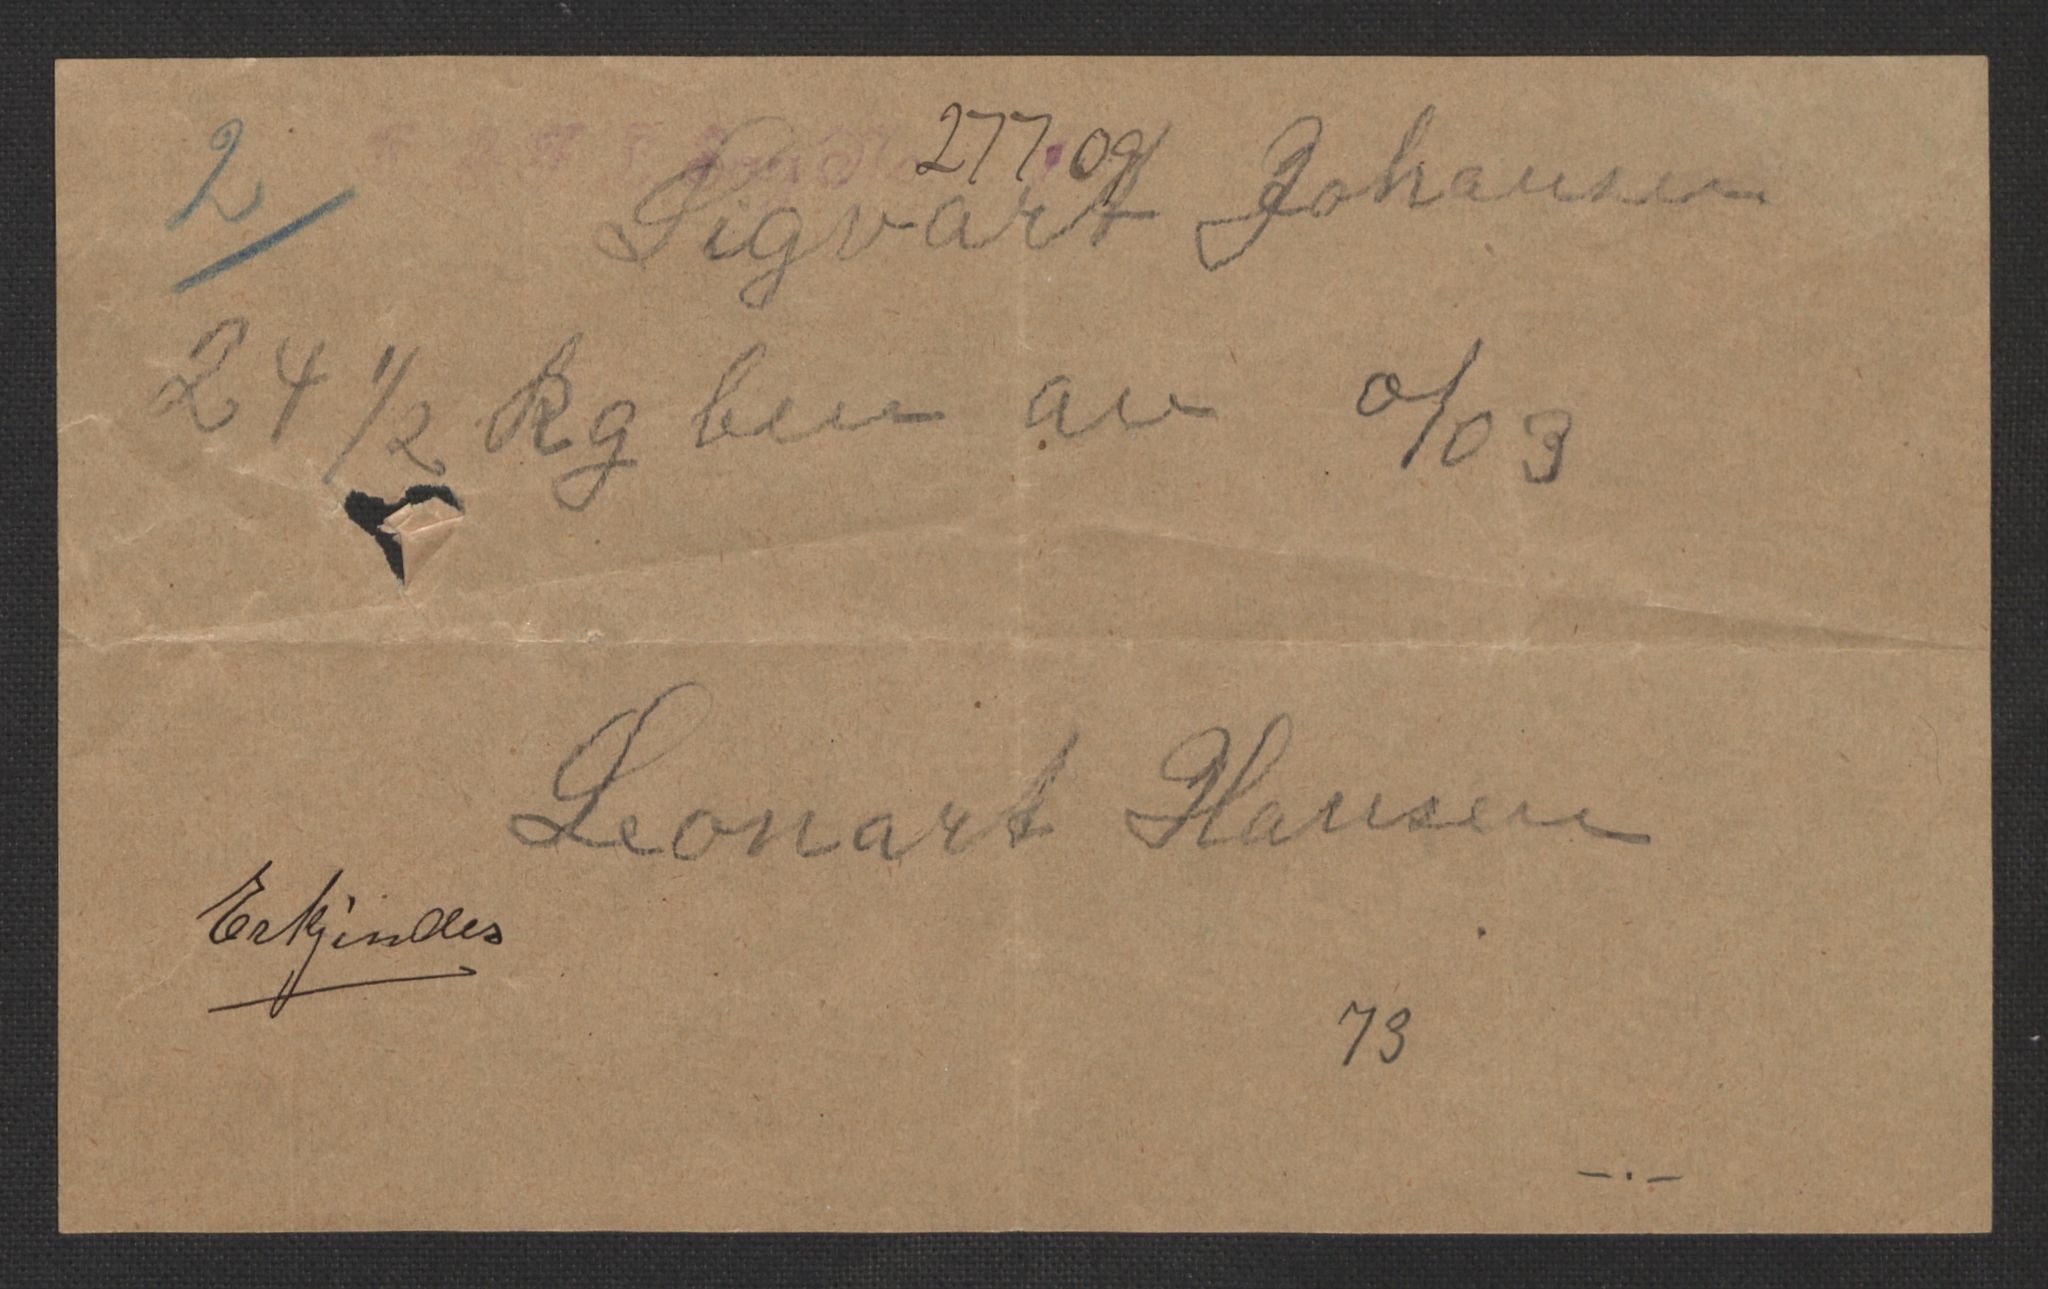 2
277.09
Sigvart Johansen
24 1/2 kg ben av o/03
Leonart Hansen
Erkjendes
73